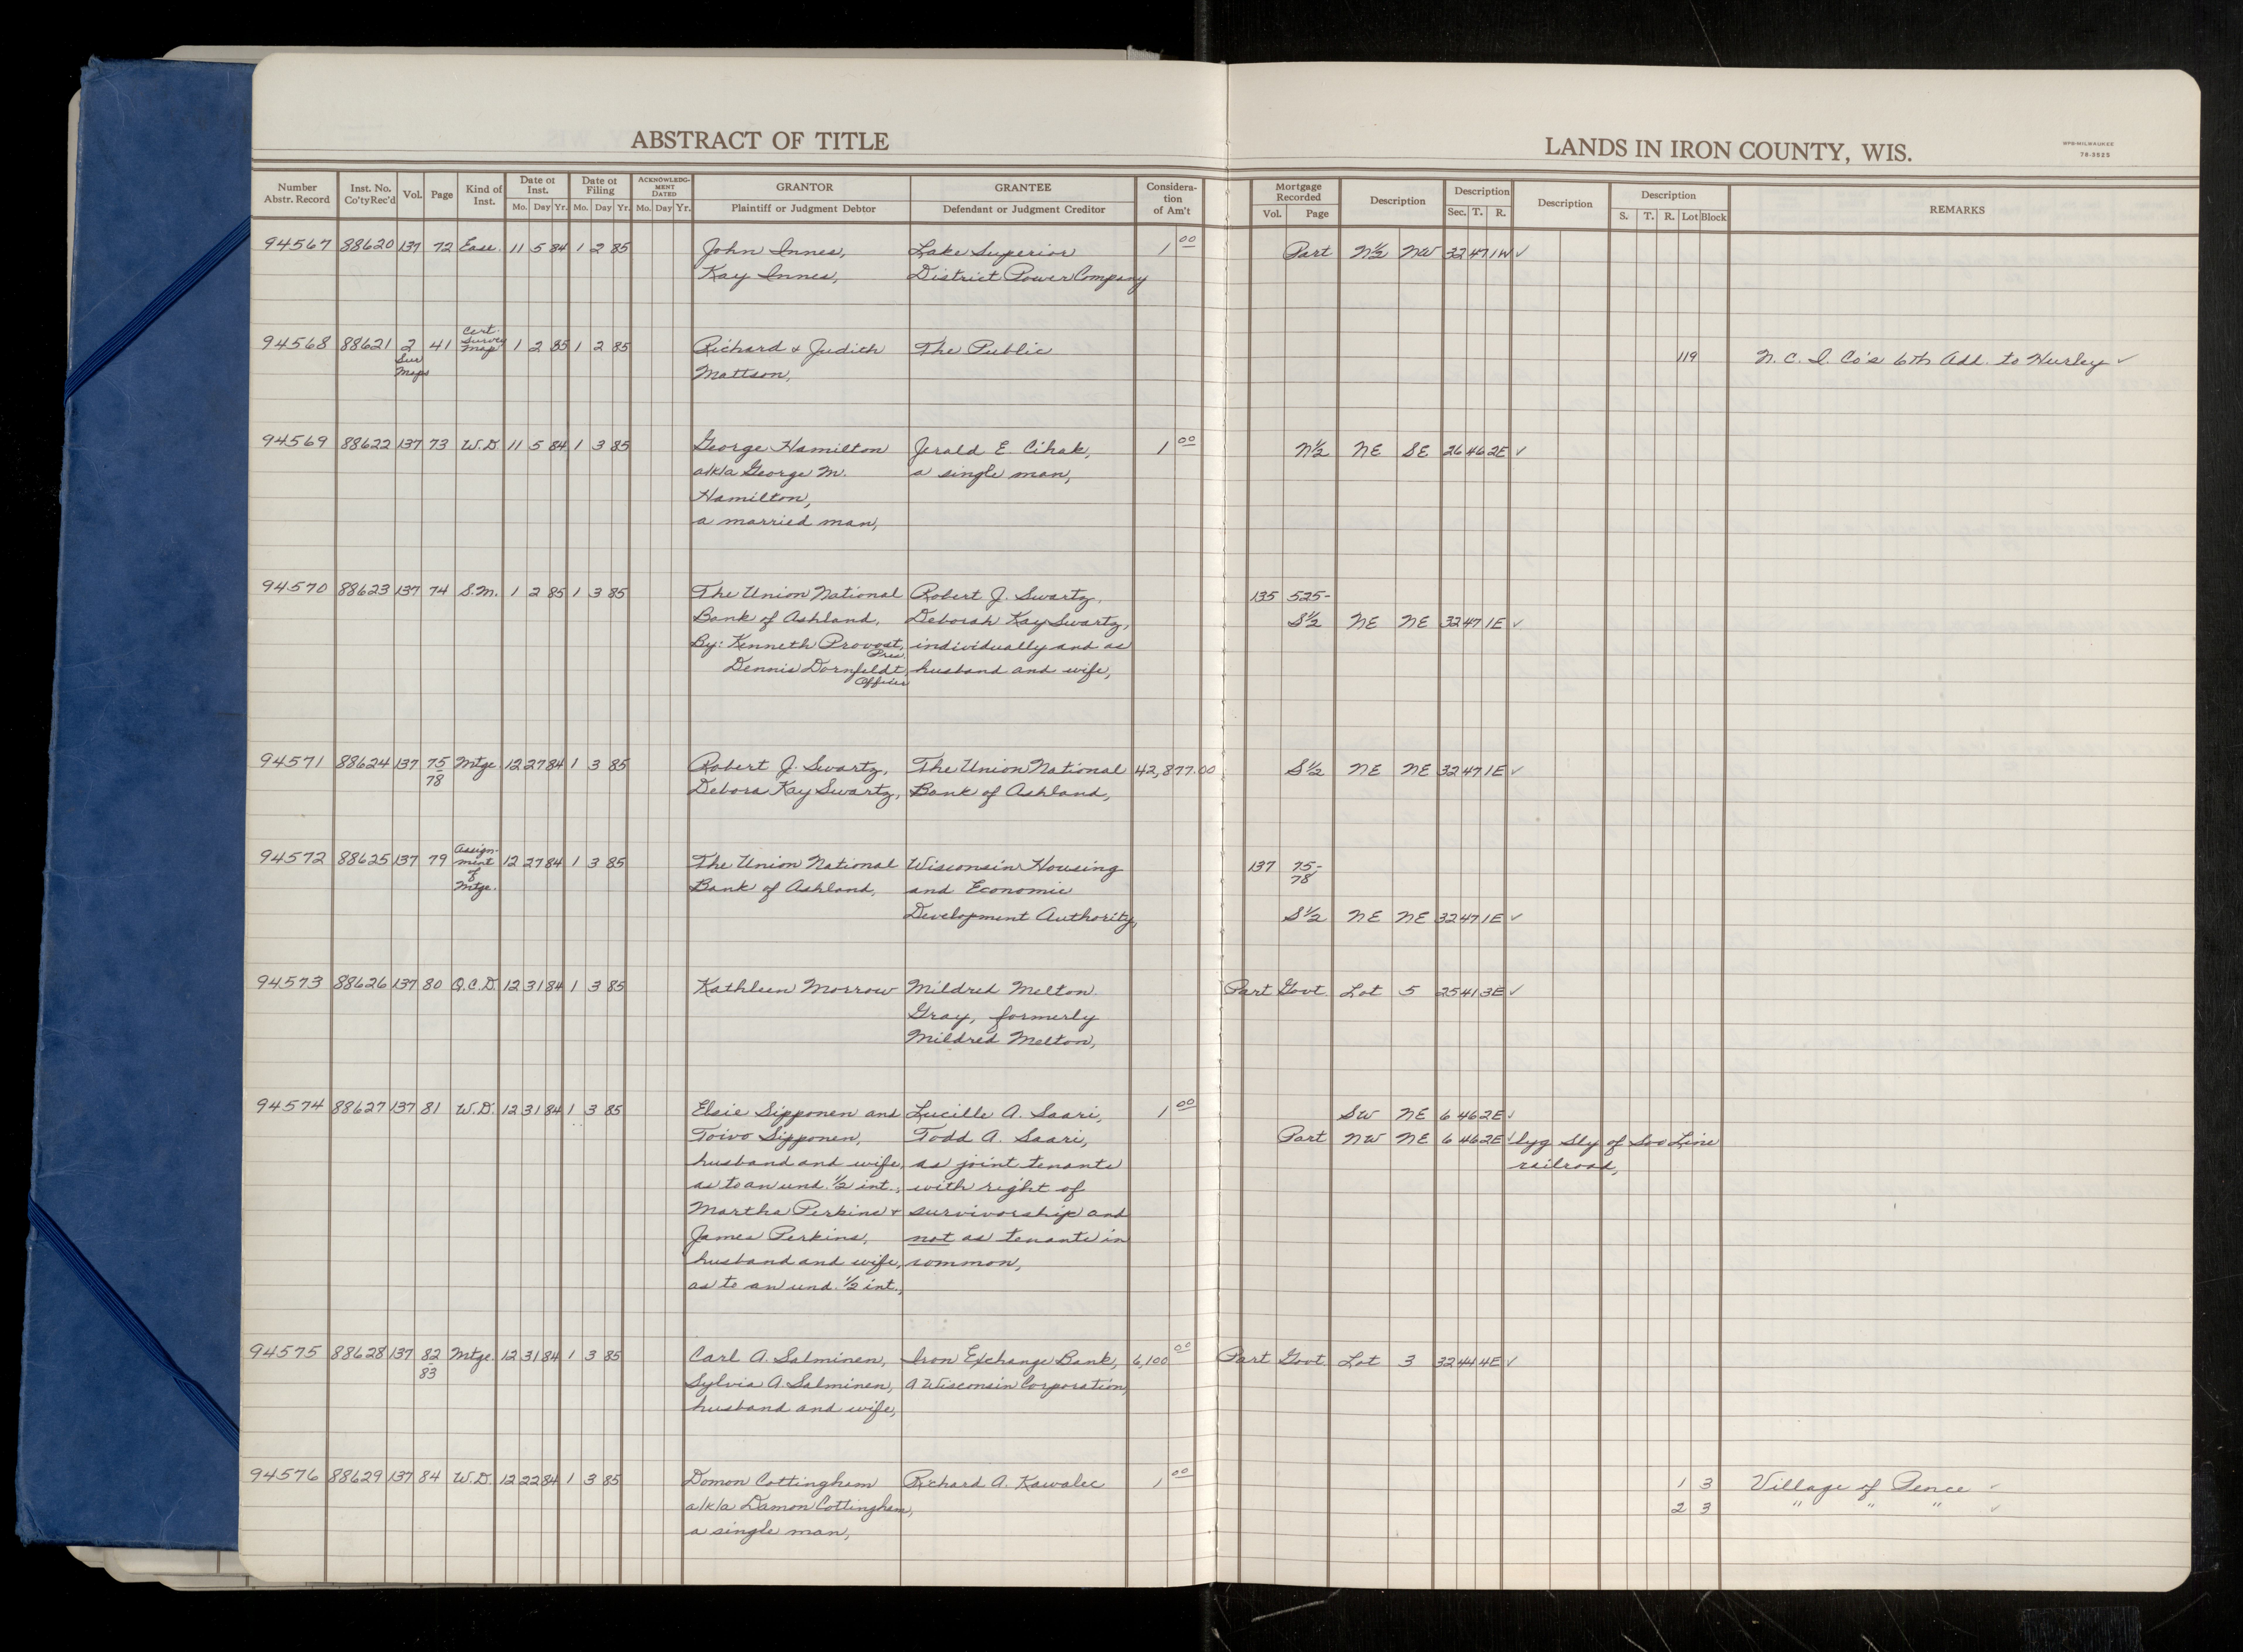 ABSTRACT OF TITLE
LANDS IN IRON COUNTY, WIS.
WPB-MILWAUKEE
76-3525
Number Abstr. Record Inst. No. Co'ty Rec'd Vol. Page Kind of Inst. Date of Inst. Mo. Day Yr. Date of Filing Mo. Day Yr. ACKNOWLEDGMENT DATED Mo. Day Yr. GRANTOR Plaintiff or Judgment Debtor GRANTEE Defendant or Judgment Creditor Consideration of Am't Mortgage Recorded Vol. Page Description Description Sec. T. R. Description Description S. T. R. Lot Block REMARKS
94567 88620 137 72 Ease. 11 5 84 1 2 85 John Innes, Lake Superior 1 00 Part N½ NW 32 47 1W ✓
Kay Innes, District Power Company
94568 88621 2 Sur Maps 41 Cert. Survey Map 1 2 85 1 2 85 Richard & Judith The Public 119 N. C. I. Co's 6th Add. to Hurley ✓
Mattson,
94569 88622 137 73 W.D. 11 5 84 1 3 85 George Hamilton Jerald E. Cihak, 1 00 N½ NE SE 26 46 2E ✓
a/k/a George M. a single man,
Hamilton,
a married man,
94570 88623 137 74 S.M. 1 2 85 1 3 85 The Union National Robert J. Swartz, 135 525-
Bank of Ashland, Deborah Kay Swartz, S½ NE NE 32 47 1E ✓
By: Kenneth Provost, Pres. individually and as
Dennis Dornfeldt, Officer husband and wife,
94571 88624 137 75 78 Mtge. 12 27 84 1 3 85 Robert J. Swartz, The Union National 42,877.00 S½ NE NE 32 47 1E ✓
Debora Kay Swartz, Bank of Ashland,
94572 88625 137 79 Assignment of Mtge. 12 27 84 1 3 85 The Union National Wisconsin Housing 137 75-78
Bank of Ashland, and Economic
Development Authority, S½ NE NE 32 47 1E ✓
94573 88626 137 80 Q.C.D. 12 31 84 1 3 85 Kathleen Morrow Mildred Melton Part Govt. Lot 5 25 41 3E ✓
Gray, formerly
Mildred Melton,
94574 88627 137 81 W.D. 12 31 84 1 3 85 Elsie Sipponen and Lucille A. Saari, 1 00 SW NE 6 46 2E ✓
Toivo Sipponen, Todd A. Saari, Part NW NE 6 46 2E ✓ lyg Sly of Soo Line
husband and wife, as joint tenants railroad,
as to an und. ½ int., with right of
Martha Perkins & survivorship and
James Perkins, not as tenants in
husband and wife, common,
as to an und. ½ int.,
94575 88628 137 82 83 Mtge. 12 31 84 1 3 85 Carl A. Salminen, Iron Exchange Bank, 6,100 00 Part Govt. Lot 3 32 44 4E ✓
Sylvia A. Salminen, A Wisconsin Corporation,
husband and wife,
94576 88629 137 84 W.D. 12 22 84 1 3 85 Domon Cottingham Richard A. Kawalec 1 00 1 3 Village of Pence ✓
a/k/a Damon Cottingham, 2 3 " " " ✓
a single man,